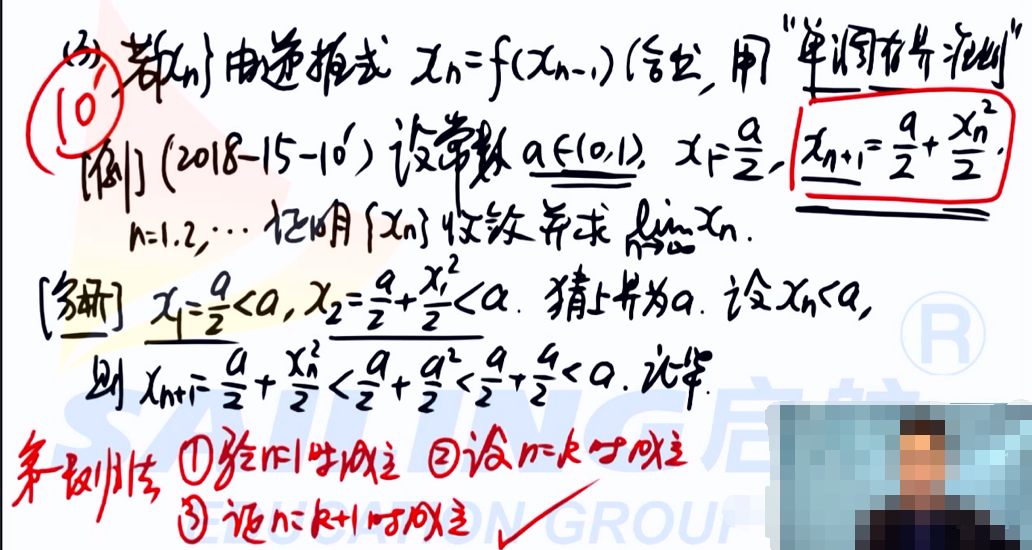 (3) 若{xₙ}由递推式 xₙ=f(xₙ₋₁)给出, 用"单调有界准则"
10'
[例] (2018-15-10') 设常数 a∈(0,1), x₁=a/2, xₙ₊₁=a/2+xₙ²/2,
n=1.2,… 证明{xₙ}收敛并求 lim n→∞ xₙ.
[分析] x₁=a/2<a, x₂=a/2+x₁²/2<a. 猜上界为a. 设xₙ<a,
则 xₙ₊₁=a/2+xₙ²/2<a/2+a²/2<a/2+a/2<a. 证毕.
第一数归法 ①验n=1时成立 ②设n=k时成立
③证n=k+1时成立
SAILING 启航
EDUCATION GROUP
®